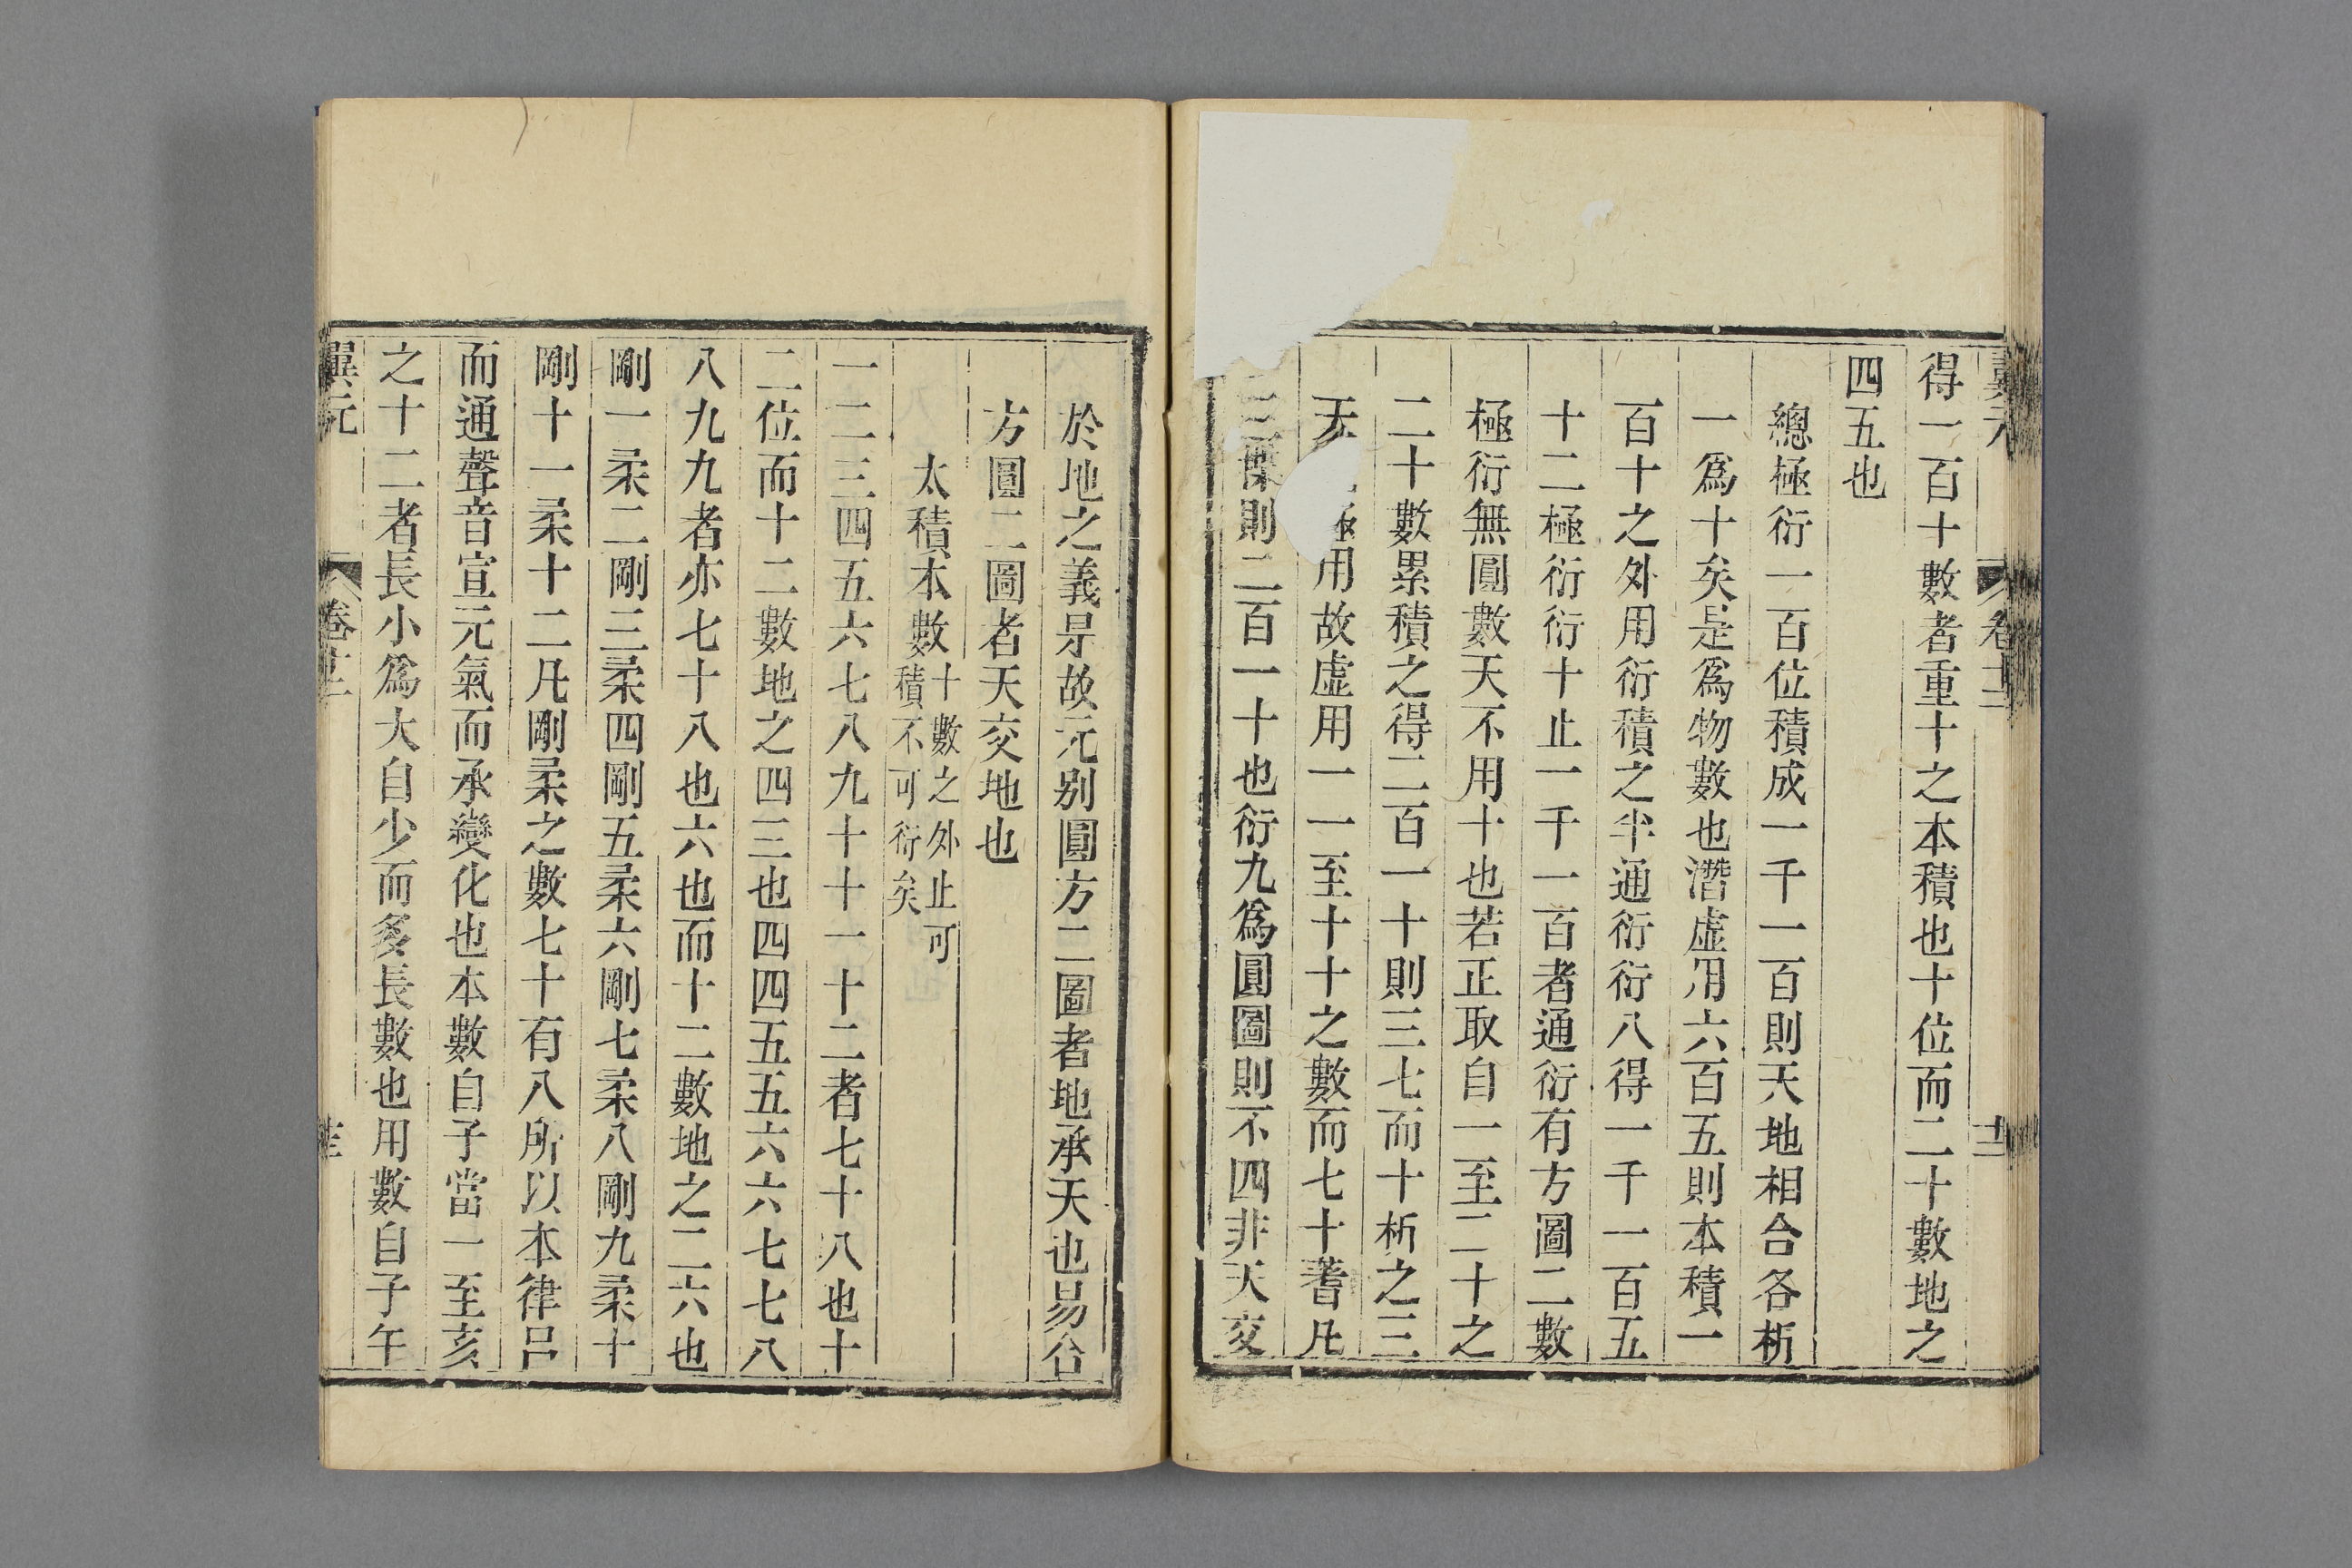 得一百百十數者重十之本積也十位而二十數地之
四五也
總極衍一百位積成一千一百則天地相合各析
一爲十矣是爲物數也潛虛用六百五則本積一
百十之外用衍積之半通衍衍八得一千一百五
十二極衍衍十止一千一百者通衍有方圖二數
極衍無圓數天不用十也若正取自一至二十之
二十數累積之得二百一十則三七而十析之三
天極用故虛用一一至十十之數而七十蓍凡
三揲則二百一十也衍九爲圓圖則不四非天交
於地之義㫷故元别圓方二圖者地承天也易合
方圓二圖者天交地也
太積本數十數之外止可積不可衍矣
一二三四五六七八九十十一十二者七十八也十
二位而十二數地之四三也四四五五六六七七八
八九九者亦七十八也六也而十二數地之二六也
剛一柔二剛三柔四剛五柔六剛七柔八剛九柔十
剛十一柔十二凡剛柔之數七十有八所以本律呂
而通聲音宣元氣而承變化也本數自子當一至亥
之十二者長小爲大自少而多長數也用數自子午